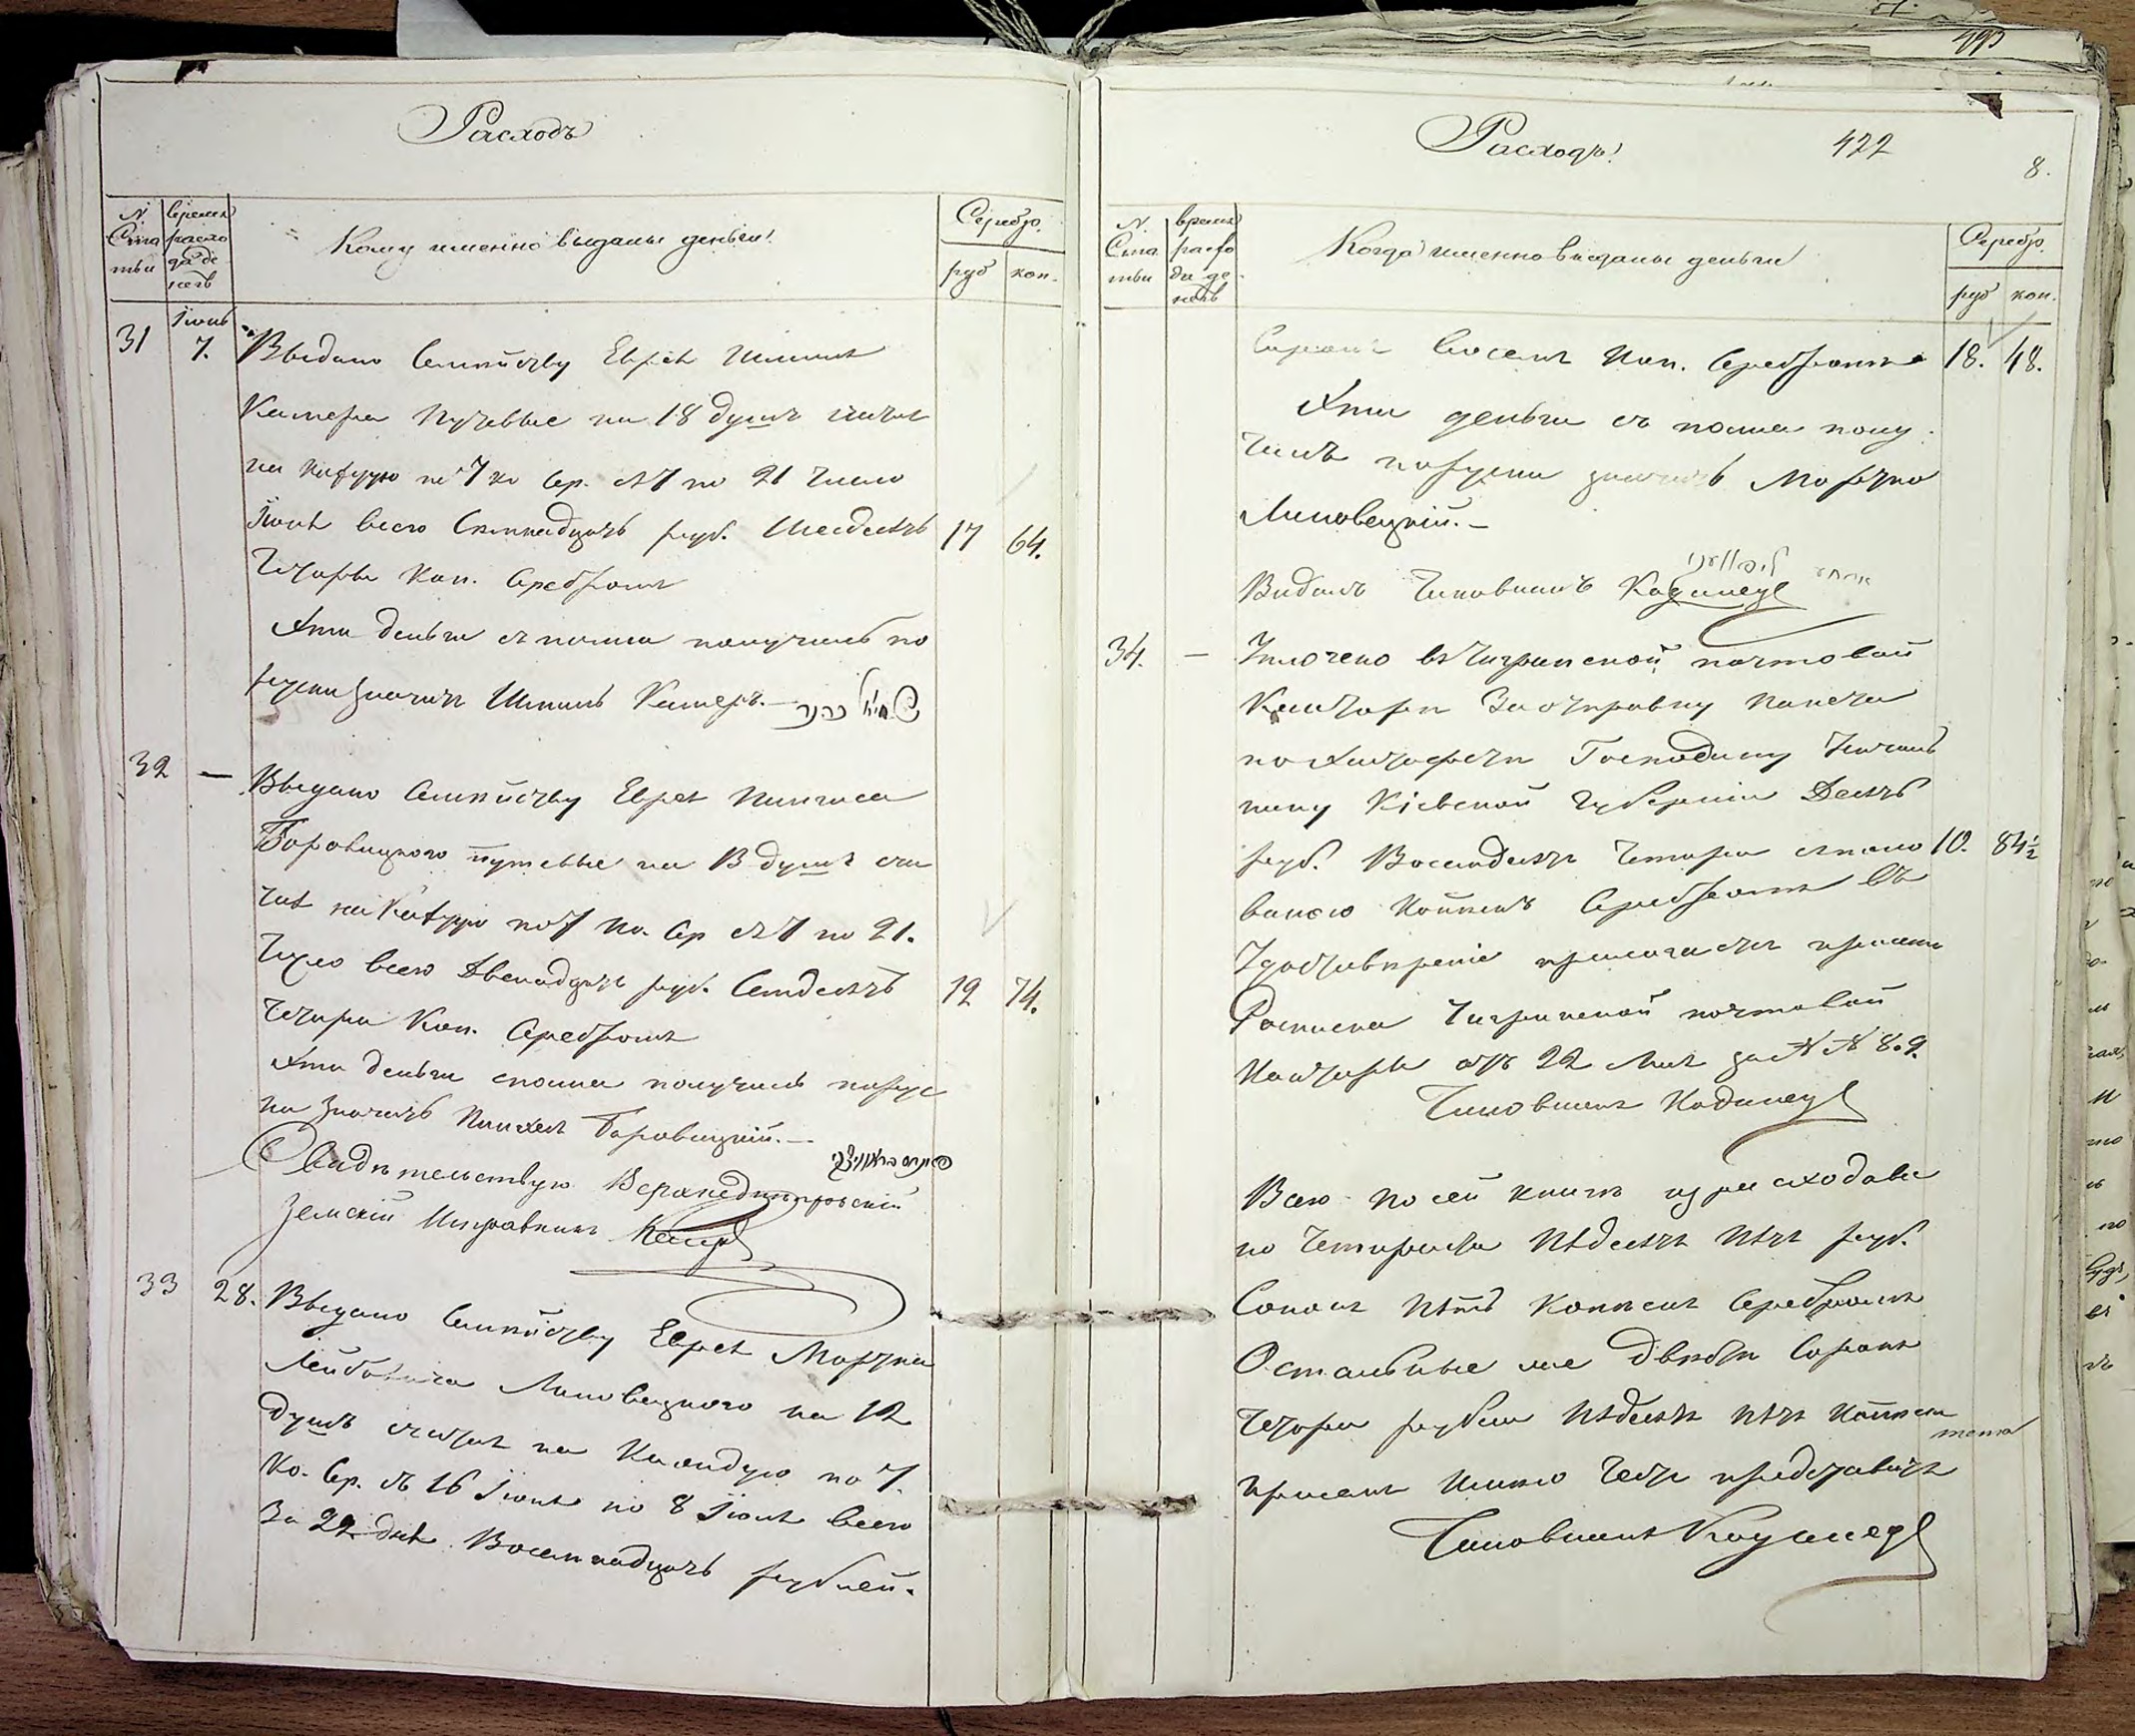 Расходъ
N.
Ста
тьи
Время
расхо
да де
негъ
Кому именно выданы деньги
Серебр.
руб коп.
31
Іюнь
7.
Выдано Семейству Еврея Шмиля
Камера Путевые на 18 душъ считая
на каждую по 7 ко Сер. съ 7 по 21 число
Іюня всего Семнадцать руб. Шесдесять 17 64.
Четыре Коп. Серебромъ
Эти деньги съ полна получилъ по
руски значитъ Шмиль Камеръ.
32 —
Выдано Семейству Еврея Пинхаса
Боровицкого путевые на 13 душъ счи
тая на Каждую по 7 ко. Сер съ 7 по 21.
Число всего Двенадцать руб. Семдесятъ 12 74.
Четыре Коп. Серебромъ
Эти деньги сполна получилъ порус
ки значитъ Пинхасъ Боровицкій.—
Свидѣтельствую Верхнеднѣпровскій
Земскій Исправникъ
33 28.
Выдано Семейству Еврея Мортка
Лейбовича Липовецкого на 12
душъ считая на Каждую по 7.
Ко. Сер. съ 16 Іюня по 8 Іюля всего
За 22 дня. Восемнадцать рублей.
493
Расходъ
422
8.
N.
Ста
тьи
время
расхо
да де
негъ
Когда именно выданы деньги
Серебр.
руб коп.
Сорокъ Восемъ Коп. Серебромъ 18. 48.
Эти деньги съ полна полу
чилъ поруски значитъ Мортко
Липовецкій.—
Видалъ Чиновникъ
34. —
Уплочено въ Чигринской почтовой
Канторе За отправку пакета
по Эштафете Господину Началь
нику Кіевской Губерніи Десять
руб. Восемдесятъ Четыре съ поло 10. 84½
виною Копѣекъ Серебромъ въ
Удостовѣреніе прилогается присемъ
Росписка Чигринской почтовой
Канторы отъ 22 за N N 8.9.
Чиновникъ
Всего по сей книгѣ израсходова
но Четыреста Пядесятъ Пять руб.
Сорокъ Пять Копѣекъ Серебромъ
Остальные же Двѣсти Сорокъ
Четыре рубли Пядесятъ пять Копѣекъ
присемъ Имѣю Честь представить
Чиновникъ